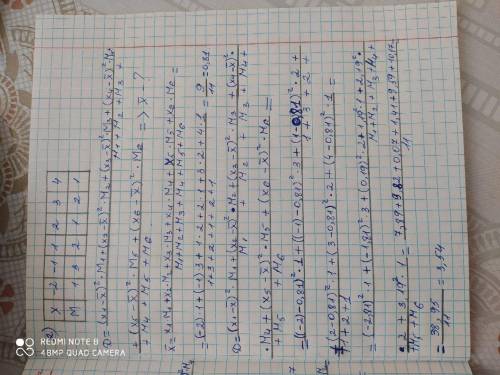 2)
X -2 -1 1 2 3 4
M 1 3 2 1 2 1
D = (x₁-x̄)²·M₁+(x₂-x̄)²·M₂+(x₃-x̄)²·M₃+(x₄-x̄)²·M₄+
M₁+M₂+M₃+
+(x₅-x̄)²·M₅+(x₆-x̄)²·M₆ => x̄-?
+M₄+M₅+M₆
x̄ = x₁M₁+x₂·M₂+x₃·M₃+x₄·M₄+x₅·M₅+x₆·M₆ =
M₁+M₂+M₃+M₄+M₅+M₆
= (-2)·1+(-1)·3+1·2+2·1+3·2+4·1 = 9 = 0,81
1+3+2+1+2+1 11
D = (x₁-x̄)²·M₁+(x₂-x̄)²·M₂+(x₃-x̄)²·M₃+(x₄-x̄)²·
M₁+M₂+M₃+M₄+
·M₄+(x₅-x̄)²·M₅+(x₆-x̄)²·M₆ =
+M₅+M₆
= ((-2)-0,81)²·1+((-1)-0,81)²·3+(1-0,81)²·2+
1+3+2+
+(2-0,81)²·1+(3-0,81)²·2+(4-0,81)²·1 =
+1+2+1
= (-2,81)²·1+(-1,81)²·3+(0,19)²·2+1,19²·1+2,19²·
M₁+M₂+M₃+M₄+
·2+3,19²·1 = 7,89+9,82+0,07+1,41+9,59+10,17 =
+M₅+M₆ 11
= 38,95 = 3,54
11
REDMI NOTE 8
48MP QUAD CAMERA